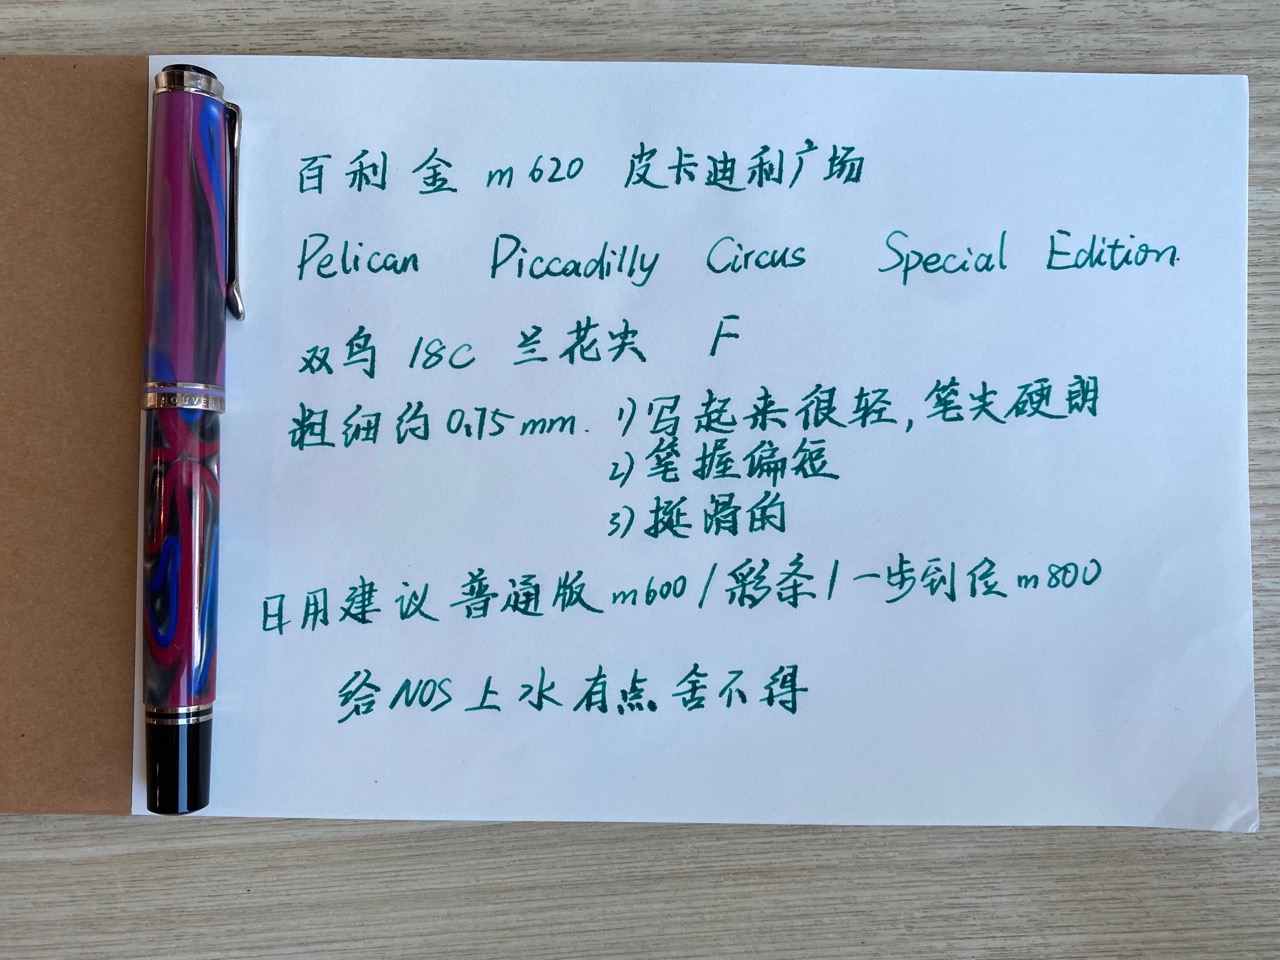 百利金 m620 皮卡迪利广场
Pelican Piccadilly Circus Special Edition.
双鸟 18C 兰花尖 F
粗细约 0.75mm. 1) 写起来很轻,笔尖硬朗
2) 笔握偏短
3) 挺滑的
日用建议 普通版 m600 / 彩条 / 一步到位 m800
给NOS上水有点舍不得
SOUVE